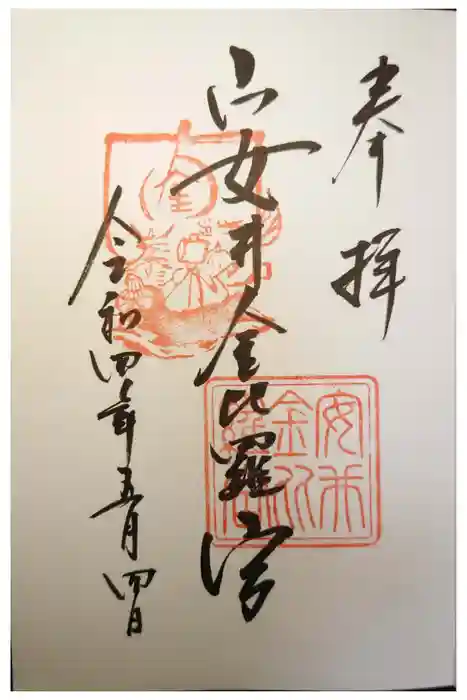 奉拝
安井金比羅宮
令和四年五月四日
金
安井
金比
羅宮